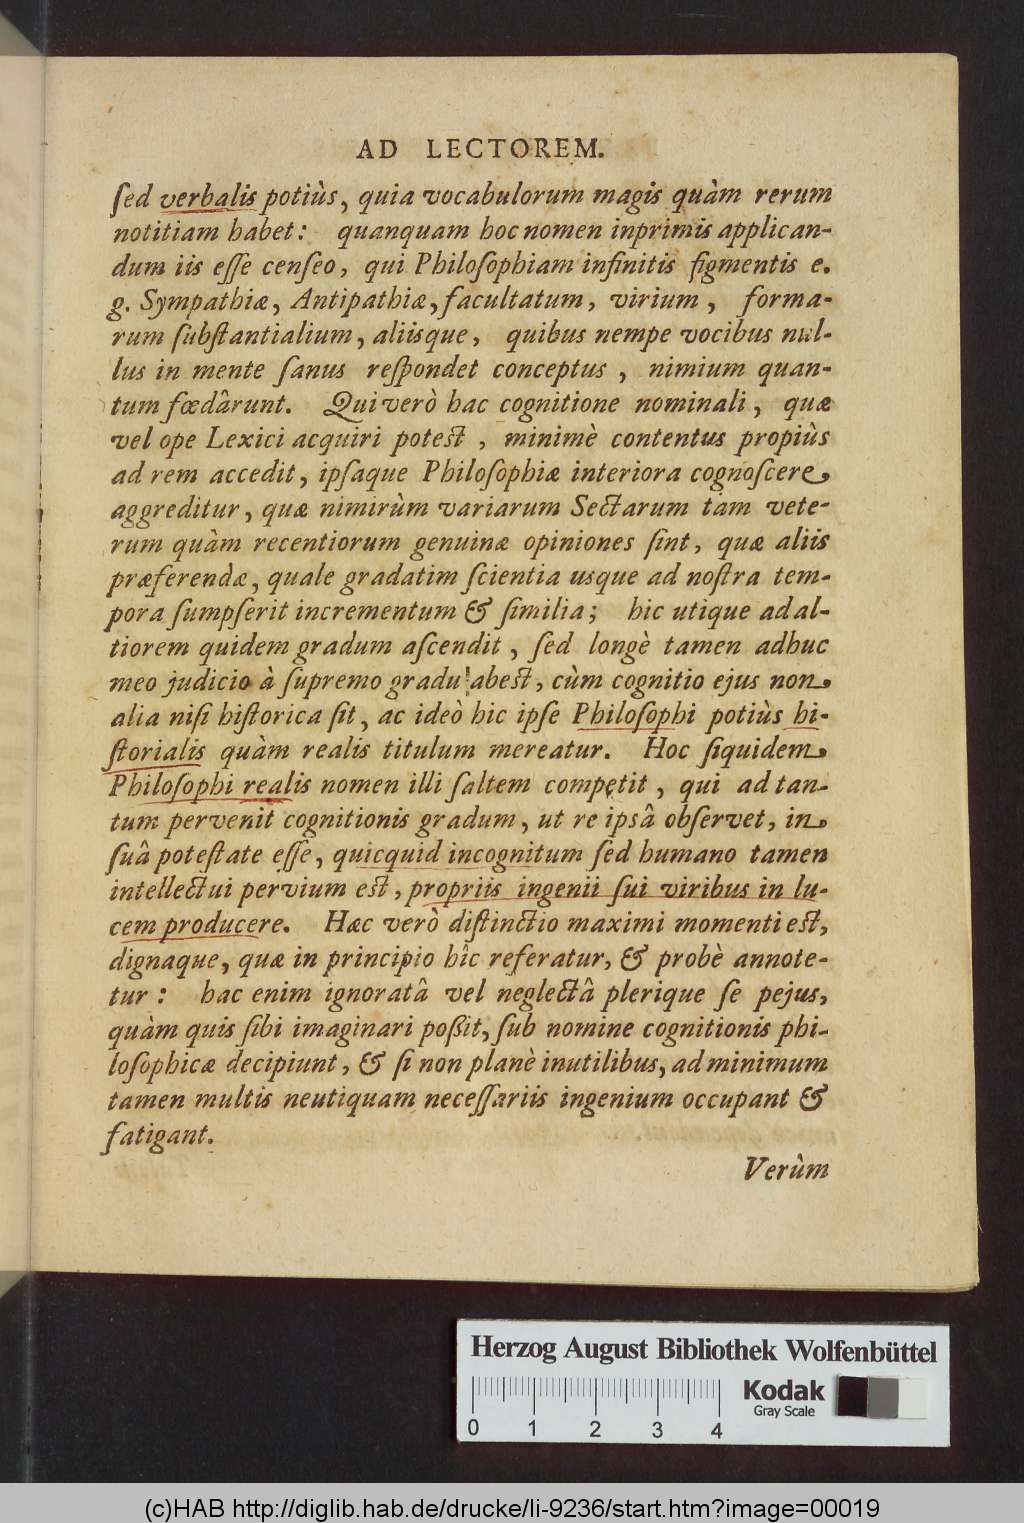 AD LECTOREM.
ſed verbalis potiùs, quia vocabulorum magis quàm rerum
notitiam habet: quanquam hoc nomen inprimis applican-
dum iis eſſe cenſeo, qui Philoſophiam infinitis figmentis e.
g. Sympathiæ, Antipathiæ, facultatum, virium, forma-
rum ſubſtantialium, aliisque, quibus nempe vocibus nul-
lus in mente ſanus reſpondet conceptus, nimium quan-
tum fœdârunt. Qui verò hac cognitione nominali, quæ
vel ope Lexici acquiri poteſt, minimè contentus propiùs
ad rem accedit, ipſaque Philoſophiæ interiora cognoſcere
aggreditur, quæ nimirùm variarum Sectarum tam vete-
rum quàm recentiorum genuinæ opiniones ſint, quæ aliis
præferendæ, quale gradatim ſcientia usque ad noſtra tem-
pora ſumpſerit incrementum & ſimilia; hic utique ad al-
tiorem quidem gradum aſcendit, ſed longè tamen adhuc
meo judicio à ſupremo gradu abeſt, cùm cognitio ejus non
alia niſi hiſtorica ſit, ac ideò hic ipſe Philoſophi potiùs hi-
ſtorialis quàm realis titulum mereatur. Hoc ſiquidem
Philoſophi realis nomen illi ſaltem competit, qui ad tan-
tum pervenit cognitionis gradum, ut re ipsâ obſervet, in
ſuâ poteſtate eſſe, quicquid incognitum ſed humano tamen
intellectui pervium eſt, propriis ingenii ſui viribus in lu-
cem producere. Hæc verò diſtinctio maximi momenti eſt,
dignaque, quæ in principio hîc referatur, & probè annote-
tur: hac enim ignoratâ vel neglectâ plerique ſe pejus,
quàm quis ſibi imaginari poßit, ſub nomine cognitionis phi-
loſophicæ decipiunt, & ſi non planè inutilibus, ad minimum
tamen multis neutiquam neceſſariis ingenium occupant &
fatigant.
Verùm
Herzog August Bibliothek Wolfenbüttel
Kodak
Gray Scale
0 1 2 3 4
(c)HAB http://diglib.hab.de/drucke/li-9236/start.htm?image=00019